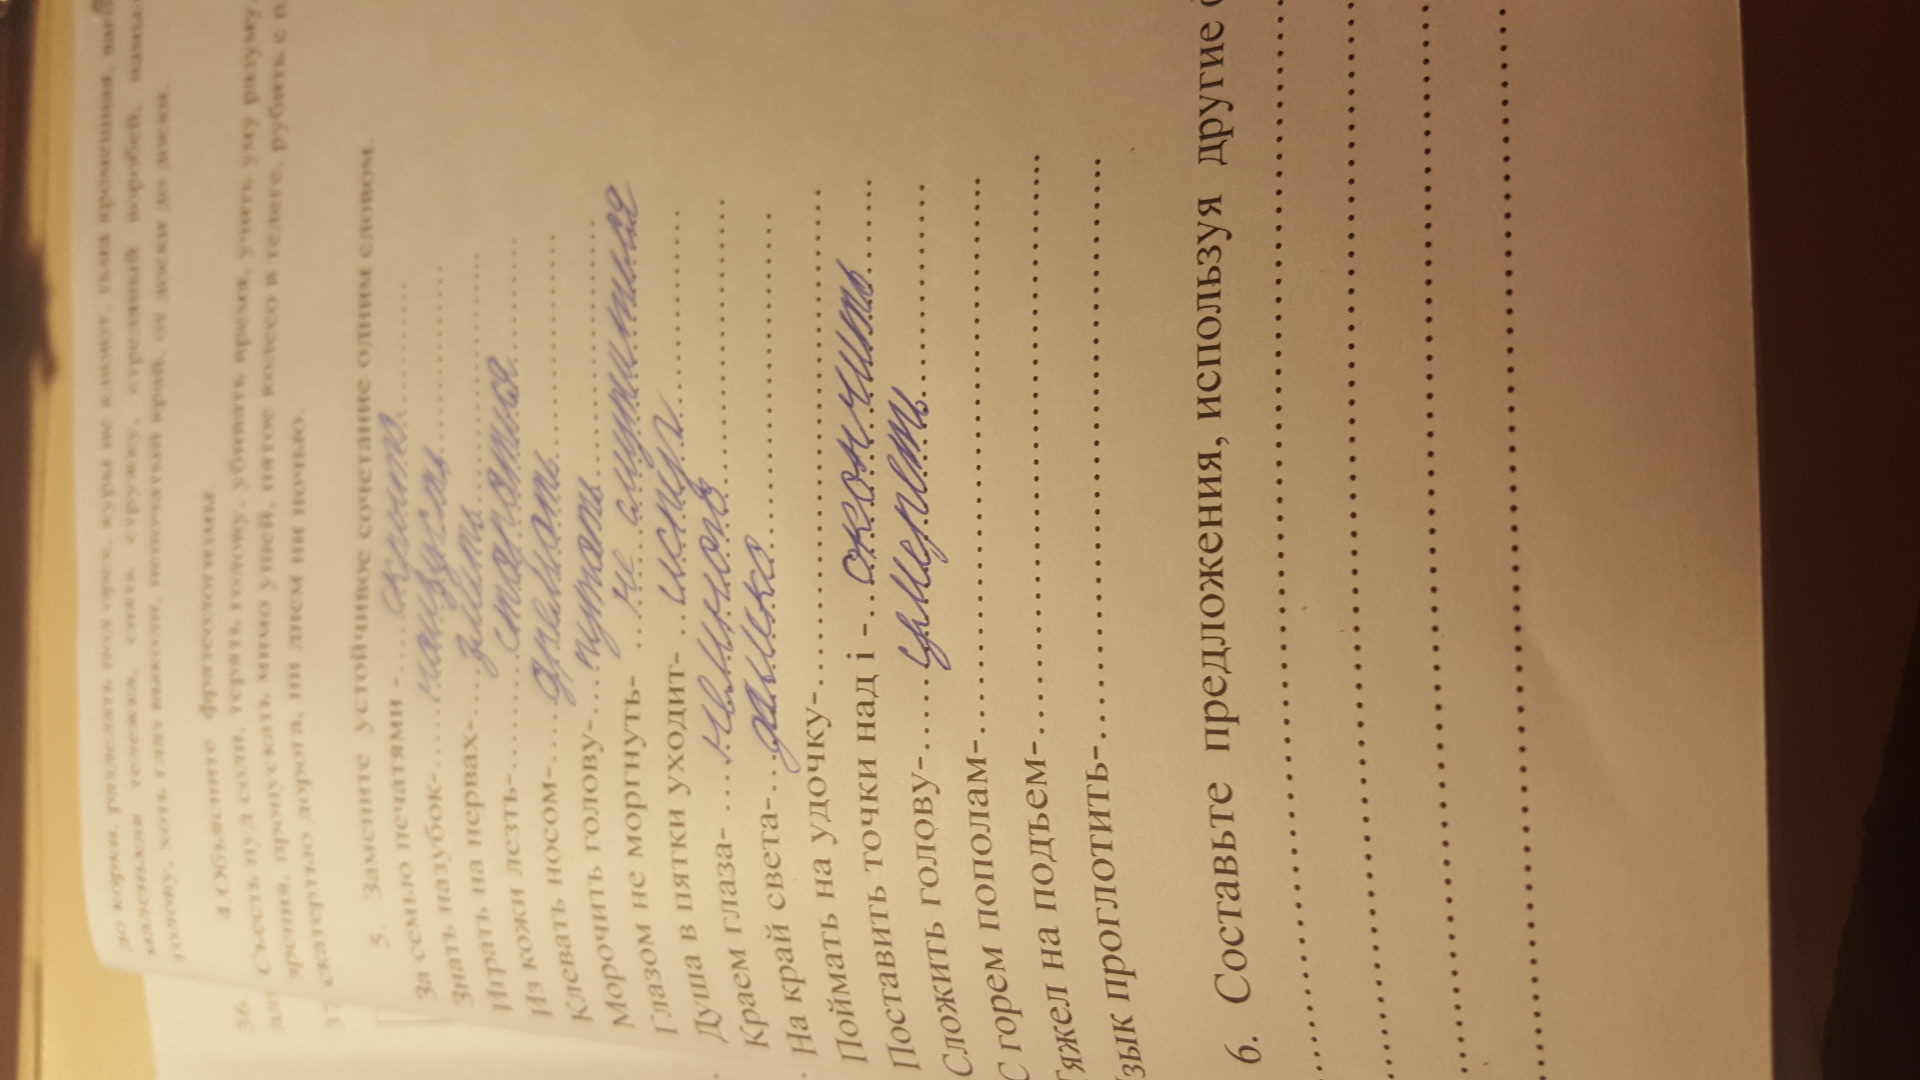 до корки, разделать под орех, куры не клюют, тьма кромешная,
маленькая тележка, снять стружку, стреляный воробей,
голову, хоть глаз выколи, непочатый край, от доски до доски.
4.Объясните фразеологизмы.
36. Съесть пуд соли, терять голову, убивать время, учить уму разуму,
зрения, пропускать мимо ушей, пятое колесо в телеге, рубить с п
37 скатертью дорога, ни днем ни ночью.
5. Замените устойчивое сочетание одним словом.
За семью печатями -.....скрыто............
Знать назубок-.....наизусть............
Играть на нервах-.....злить............
Из кожи лезть-.........стараться............
Клевать носом-....дремать............
Морочить голову-....путать............
Глазом не моргнуть- ....не смутиться
Душа в пятки уходит- ..испуг............
Краем глаза- ....
На край света-...далеко............
Поймать на удочку-........................
Поставить точки над i -...окончить......
Сложить голову-.....умереть............
С горем пополам-........................
яжел на подъем-........................
зык проглотить-........................
6. Составьте предложения, используя другие